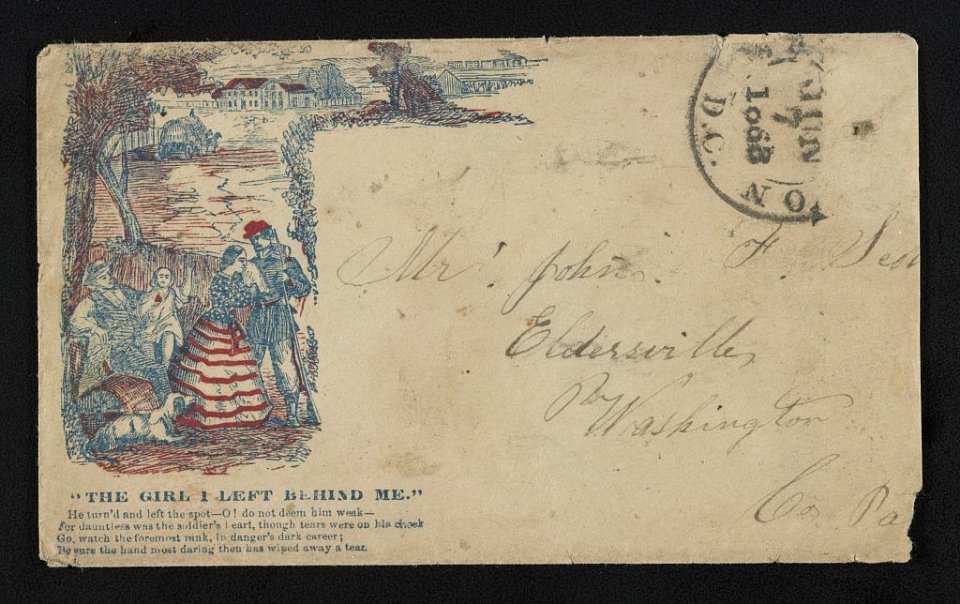 JUN
7
1863
D.C.
ON
Mr. John F.
Eldersville
Washington
Co Pa
"THE GIRL I LEFT BEHIND ME."
He turn'd and left the spot—O! do not deem him weak—
For dauntless was the soldier's heart, though tears were on his cheek
Go, watch the foremost rank, In danger's dark career;
Be sure the hand most daring then has wiped away a tear.